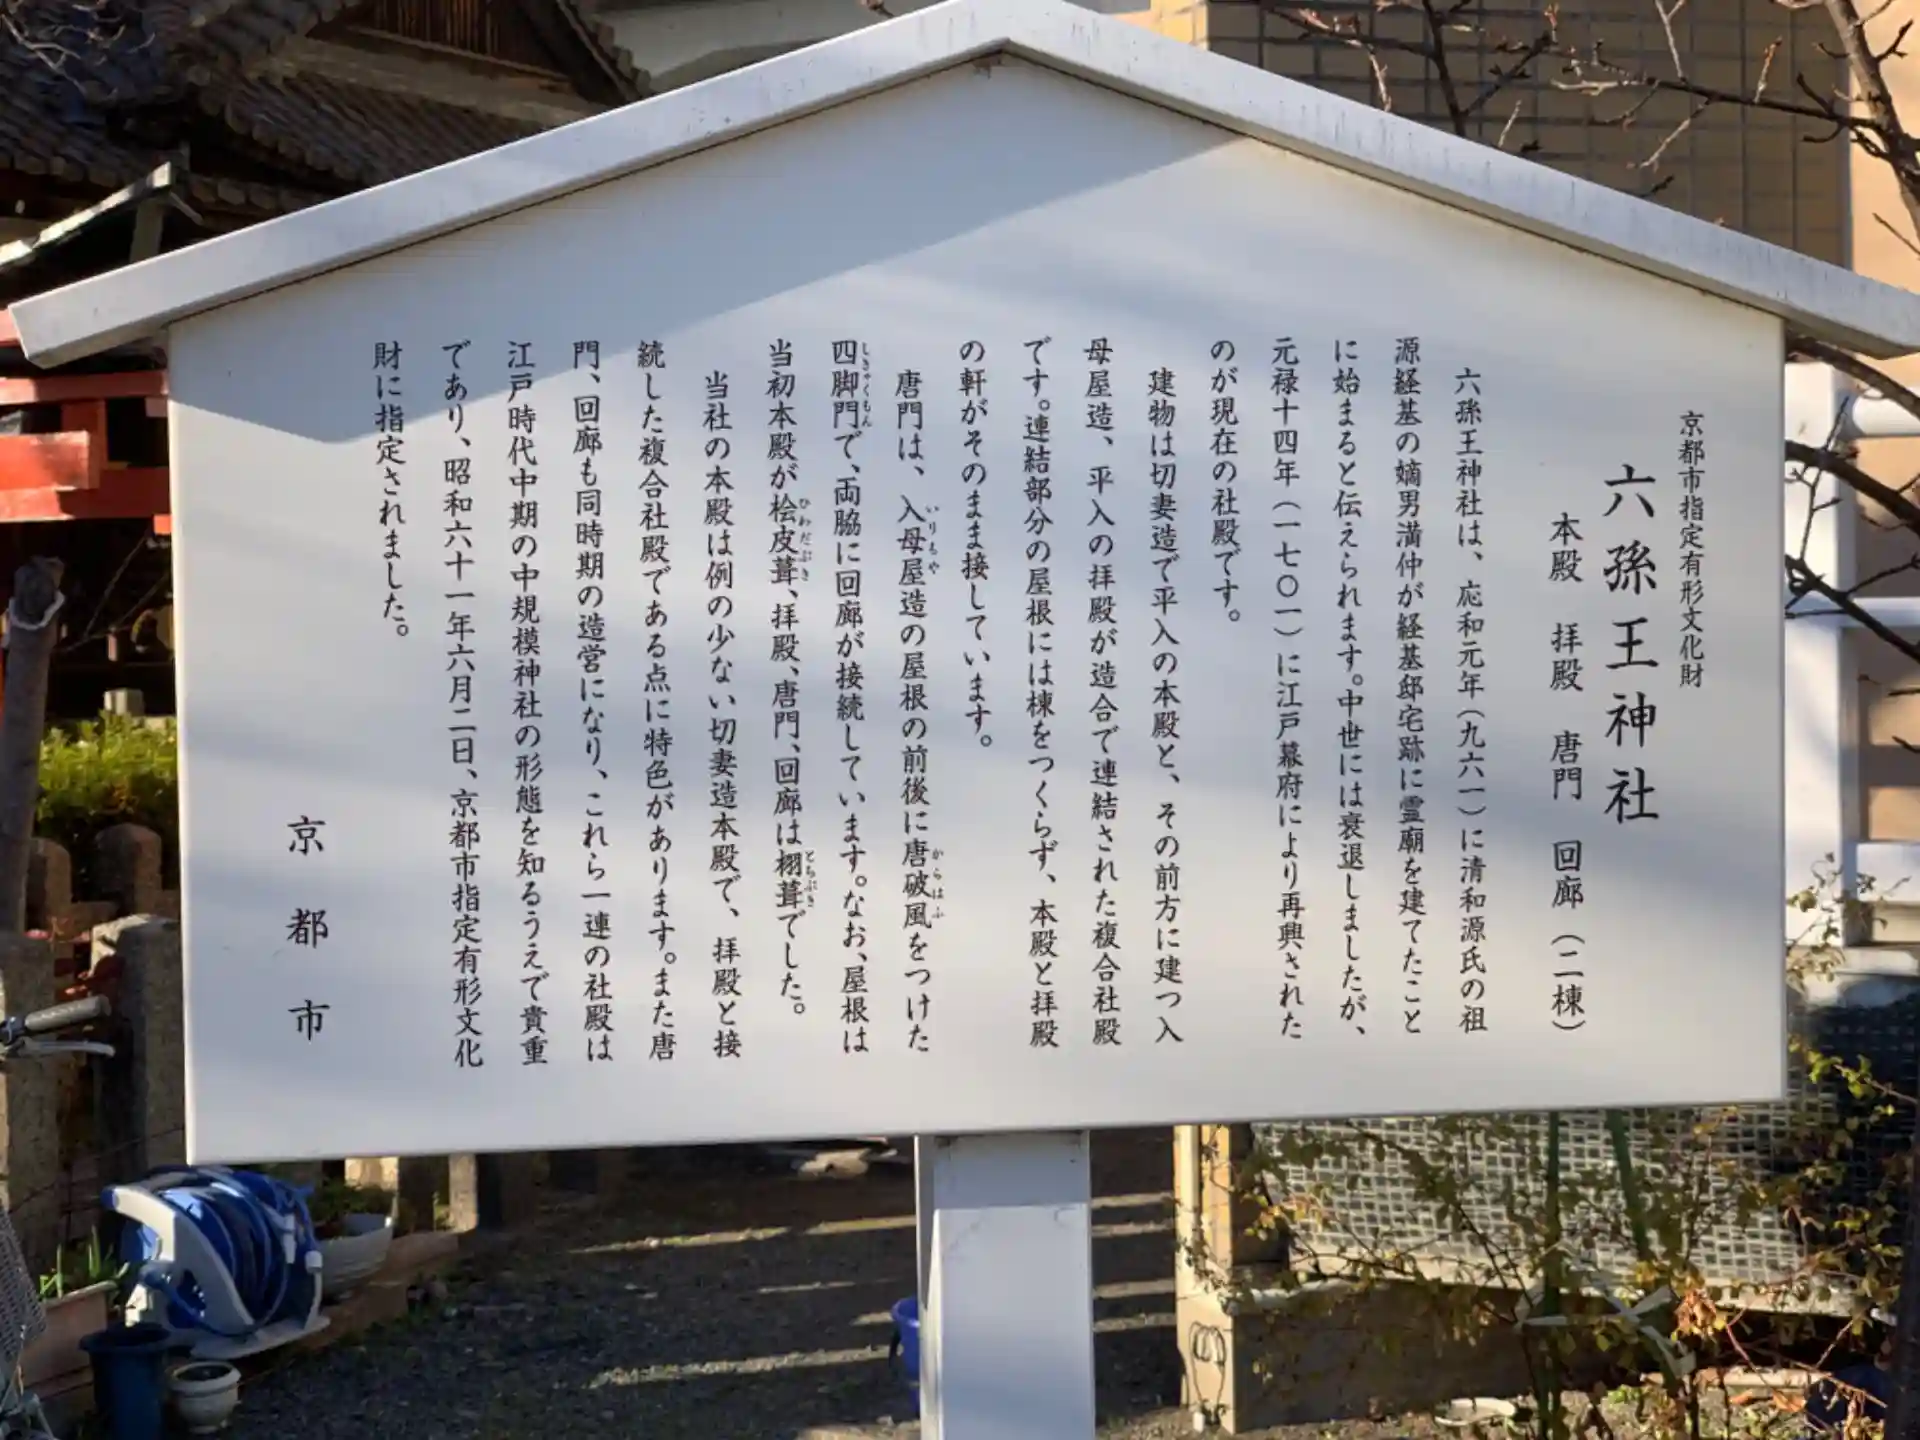 京都市指定有形文化財
六孫王神社
本殿　拝殿　唐門　回廊（二棟）
六孫王神社は、応和元年（九六一）に清和源氏の祖
源経基の嫡男満仲が経基邸宅跡に霊廟を建てたこと
に始まると伝えられます。中世には衰退しましたが、
元禄十四年（一七〇一）に江戸幕府により再興された
のが現在の社殿です。
建物は切妻造で平入の本殿と、その前方に建つ入
母屋造、平入の拝殿が造合で連結された複合社殿
です。連結部分の屋根には棟をつくらず、本殿と拝殿
の軒がそのまま接しています。
唐門は、入母屋造の屋根の前後に唐破風をつけた
いりもや
からはふ
四脚門で、両脇に回廊が接続しています。なお、屋根は
しきゃくもん
当初本殿が桧皮葺、拝殿、唐門、回廊は栩葺でした。
ひわだぶき
とちぶき
当社の本殿は例の少ない切妻造本殿で、拝殿と接
続した複合社殿である点に特色があります。また唐
門、回廊も同時期の造営になり、これら一連の社殿は
江戸時代中期の中規模神社の形態を知るうえで貴重
であり、昭和六十一年六月二日、京都市指定有形文化
財に指定されました。
京都市